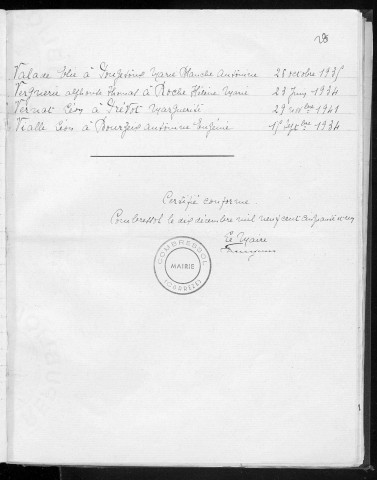 Valade Elie à Marie Blanche Antoinine 25 octobre 193
Vergnerie Alphonse Thomas à Roche Hélène Marie 23 juin 1934
Vernat Léon à Prévot Marguerite 29 1941
Vialle Léon à Bourzeix Antoinine Eugénie 1934
Certifié conforme
Combressol le dix décembre mil neuf cent cinquante et un
Le Maire
COMBRESSOL
MAIRIE
(CORRÈZE)